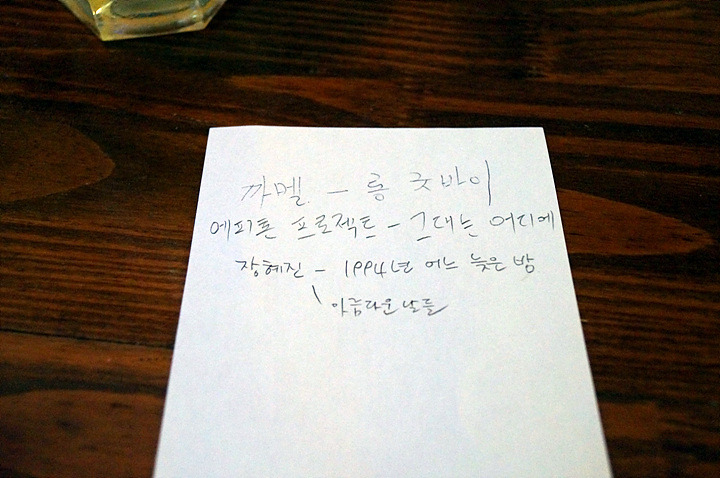 까멜 - 롱 굿바이
에피톤 프로젝트 - 그대는 어디에
장혜진 - 1994년 어느 늦은 밤
아름다운 날들